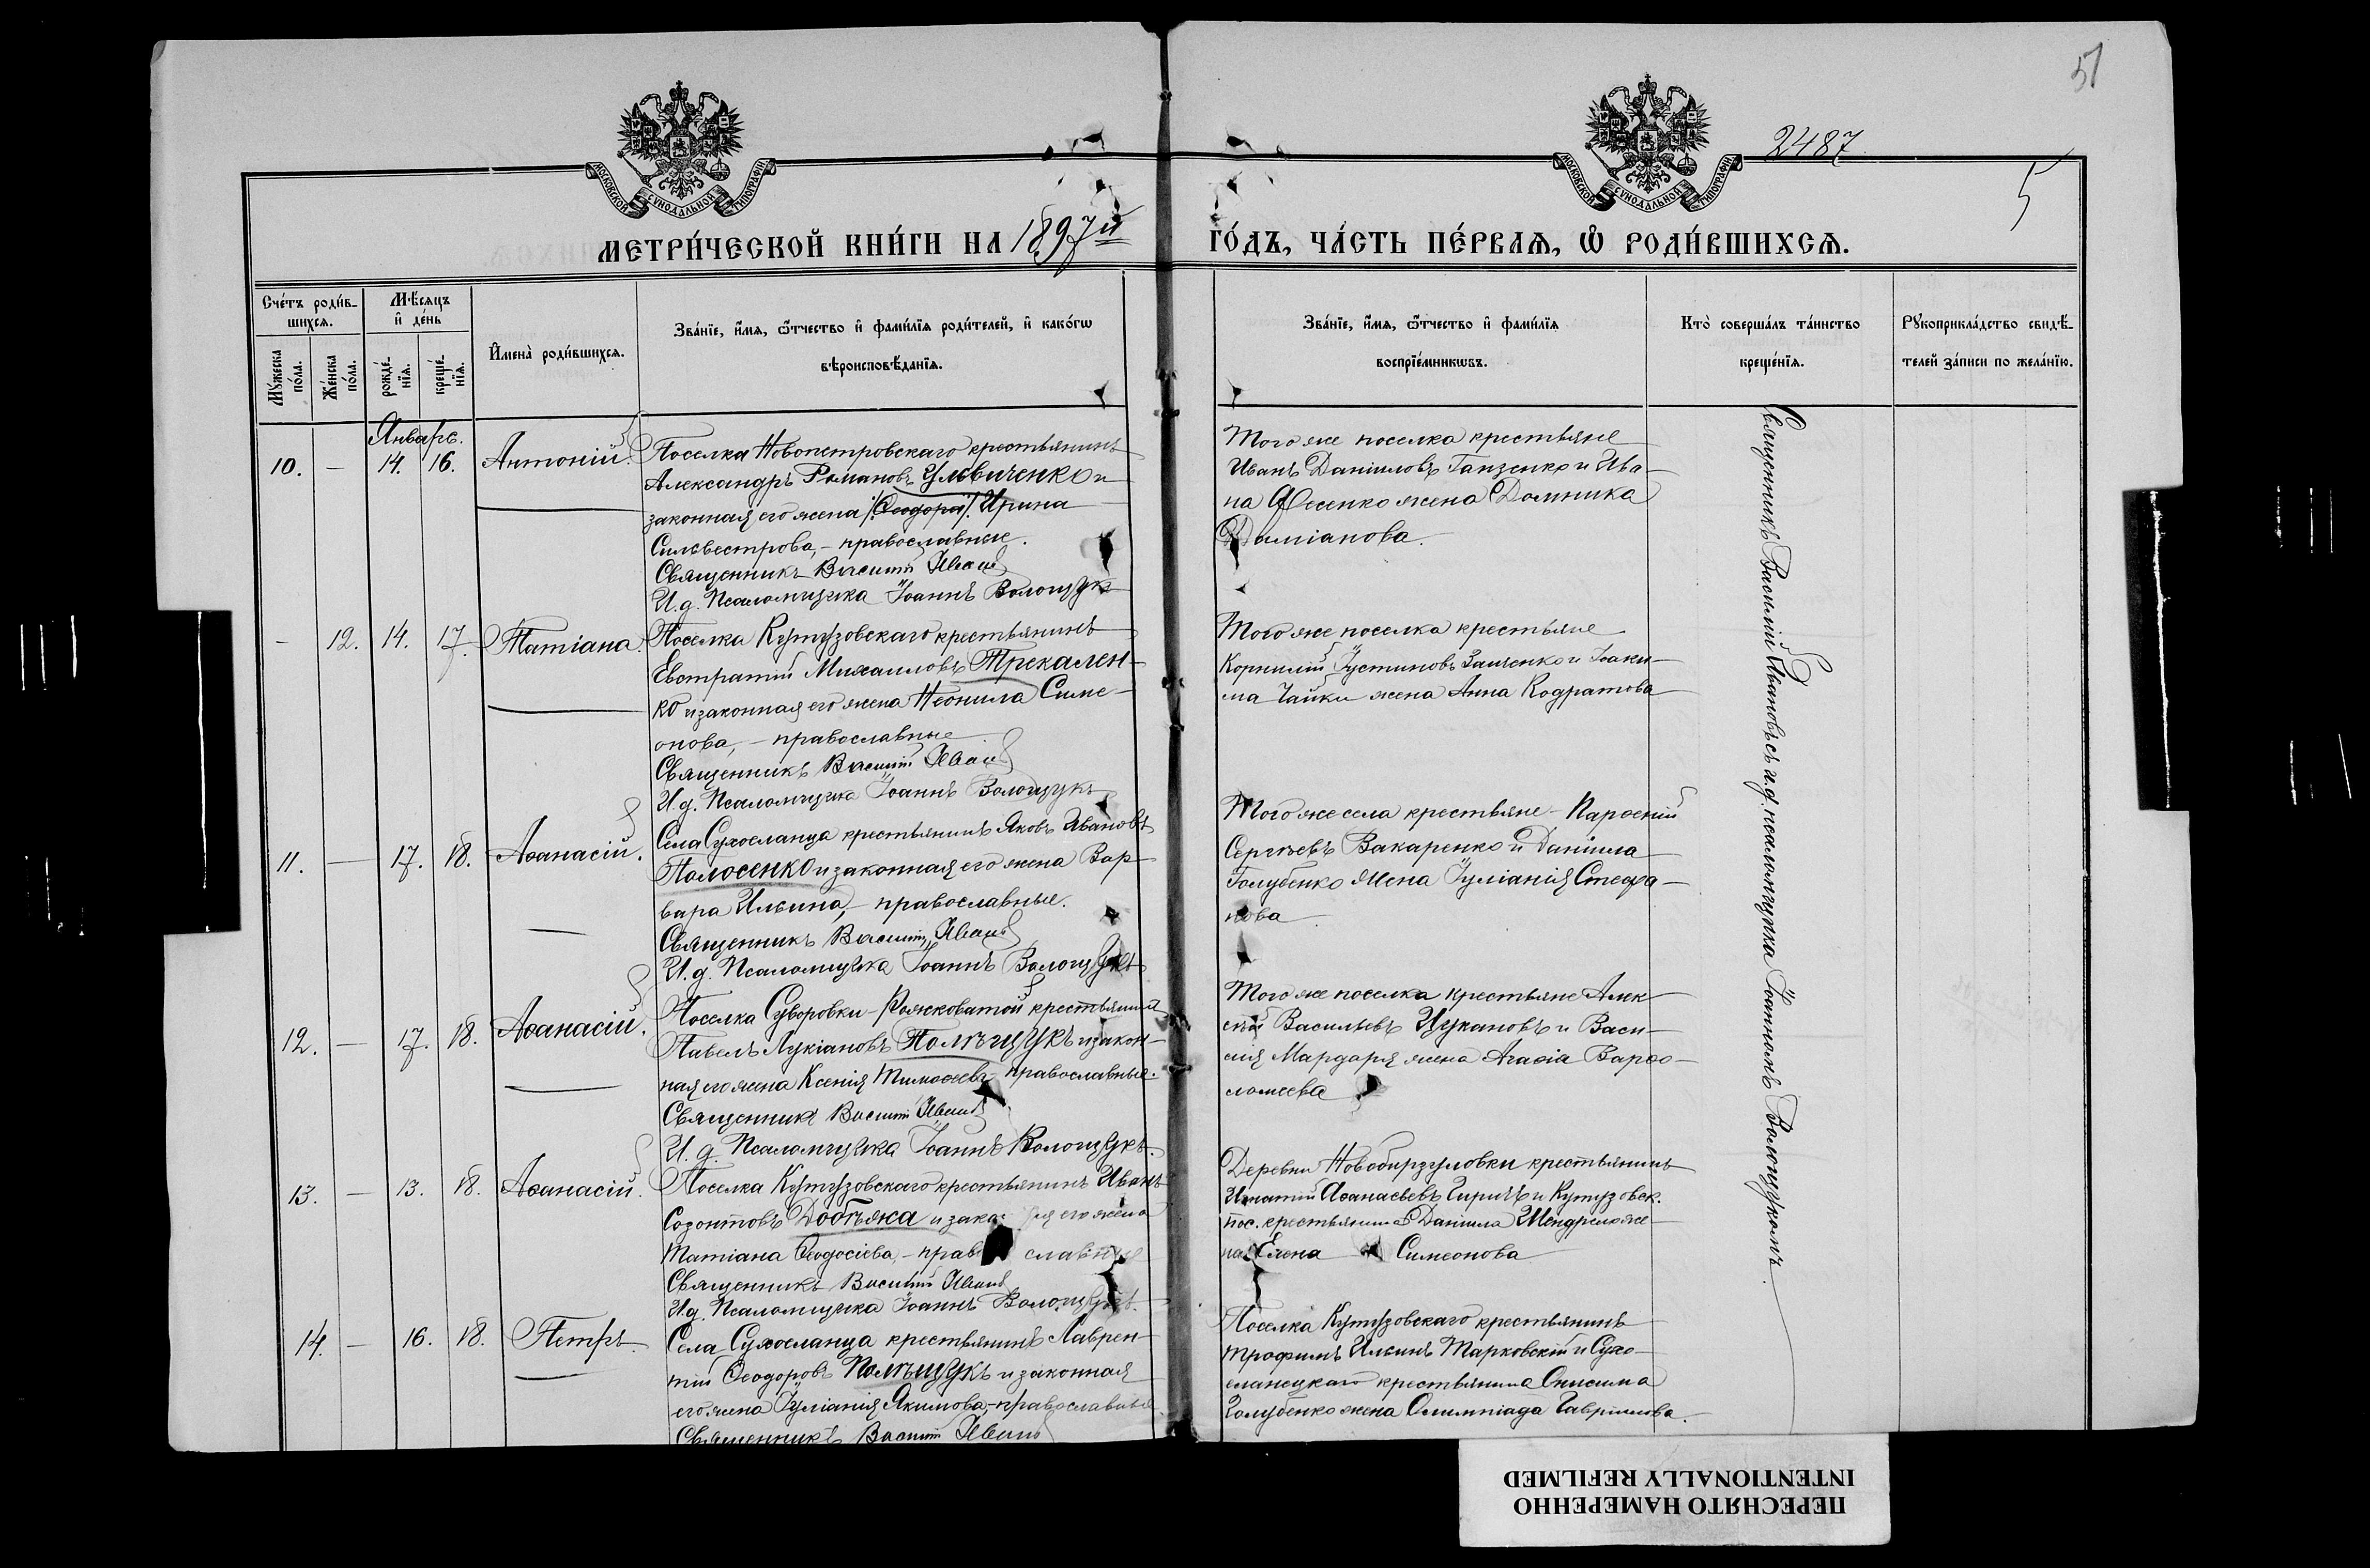 51
2487
5
МОСКОВСКОЙ СѴНОДАЛЬНОЙ ТИПОГРАФІИ
МОСКОВСКОЙ СѴНОДАЛЬНОЙ ТИПОГРАФІИ
МЕТРИ́ЧЕСКОЙ КНИ́ГИ НА 1897й
ГО́ДЪ, ЧА́СТЬ ПЕ́РВАѦ, Ѡ҆ РОДИ́ВШИХСѦ.
Сче́тъ роди́в-
шихсѧ.
Мꙋ́жеска по́ла.
Же́нска по́ла.
Мѣ́сѧцъ
и҆ де́нь
рожде́-
нїѧ.
креще́-
нїѧ.
И҆мена̀ роди́вшихсѧ.
Зва́нїе, и҆́мѧ, ѻ҆́тчество и҆ фами́лїѧ роди́телей, и҆ како́гѡ
вѣроисповѣ́данїѧ.
Зва́нїе, и҆́мѧ, ѻ҆́тчество и҆ фами́лїѧ
воспрїе́мникѡвъ.
Кто̀ соверша́лъ та́инство
креще́нїѧ.
Рꙋкоприкла́дство свидѣ́-
телей за́писи по жела́нїю.
Январь.
10. — 14. 16. Антоній.
Поселка Новопетровскаго крестьянинъ
Александръ Романовъ Ульвиченко и
законная его жена /Ѳеодора/ Ирина
Сильвестрова, – православные.
Священникъ Василій Иванов
И.д. Псаломщика Іоаннъ Волощукъ
Того же поселка крестьяне
Иванъ Даніиловъ Ганзенко и Ива-
на Фесенко жена Домника
Даміанова.
— 12. 14. 17. Татіана.
Поселка Кутузовскаго крестьянинъ
Евстратій Михаиловъ Трекален-
ко и законная его жена Неонила Симе-
онова, – православные
Священникъ Василій Иванов
И.д. Псаломщика Іоаннъ Волощукъ
Того же поселка крестьяне
Корнилій Іустиновъ Заиченко и Іоаки-
ма Чайки жена Анна Кодратова
11. — 17. 18. Аѳанасій.
Села Сухоланца крестьянинъ Яковъ Ивановъ
Полосенко и законная его жена Вар-
вара Ильина, – православные.
Священникъ Василій Иванов
И.д. Псаломщика Іоаннъ Волощукъ
Того же села крестьяне – Парѳеній
Сергѣевъ Вакаренко и Даніила
Голубенко жена Іуліанія Стефа-
нова
12. — 17. 18. Аѳанасій.
Поселка Суворовки – Рожковатой крестьянинъ
Павелъ Лукіановъ Полѣщукъ и закон-
ная его жена Ксенія Тимоѳеева православные.
Священникъ Василій Иванов
И.д. Псаломщика Іоаннъ Волощукъ.
Того же поселка крестьяне Алек-
сѣй Васильевъ Цукановъ и Васи-
лія Мардаря жена Агаѳія Варѳо-
ломеева
13. — 13. 18. Аѳанасій.
Поселка Кутузовскаго крестьянинъ Иванъ
Созонтовъ Добѣжа и зако ная его жена
Татіана Ѳеодосіева, – прав славные
Священникъ Василій Иванов
И.д. Псаломщика Іоаннъ Волощукъ.
Деревни Новобирзуловки крестьянинъ
Игнатій Аѳанасьевъ Гиричъ и Кутузовск.
пос. крестьянина Даніила Шендрело же-
на Елена Симеонова
14. — 16. 18. Петръ.
Села Сухоланца крестьянинъ Лаврен-
тій Ѳеодоровъ Полѣщукъ и законная
его жена Іуліанія Якимова, – православные
Священникъ Василій Иванов
Поселка Кутузовскаго крестьянинъ
Трофимъ Ильинъ Тарковскій и Сухо-
ланецкаго крестьянина Онисима
Голубенко жена Олимпіада Гавриилова.
Священникъ Василій Ивановъ съ и.д. псаломщика Іоанномъ Волощукомъ.
ПЕРЕСНЯТО НАМЕРЕННО
INTENTIONALLY REFILMED